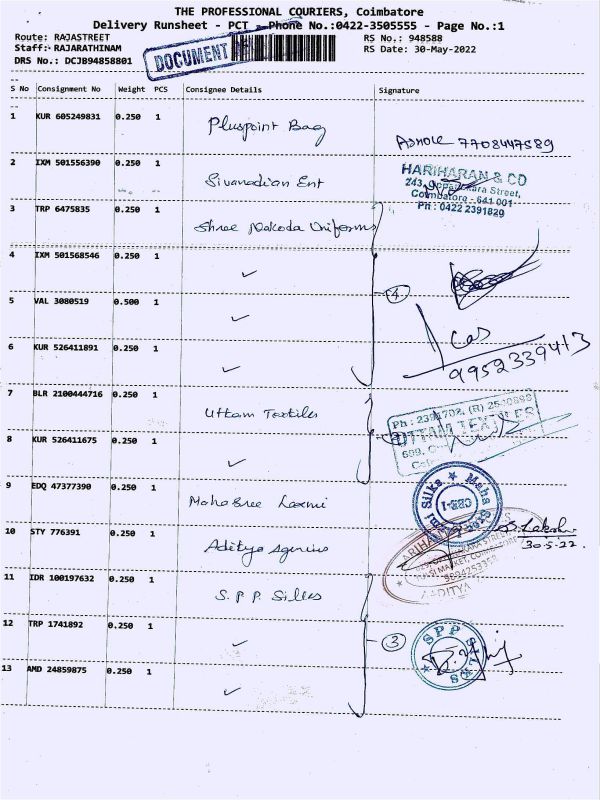 THE PROFESSIONAL COURIERS, Coimbatore
Delivery Runsheet - PCT - Phone No.:0422-3505555 - Page No.:1
Route: RAJASTREET
RS No.: 948588
Staff: RAJARATHINAM
RS Date: 30-May-2022
DRS No.: DCJB94858801
DOCUMENT
S No Consignment No Weight PCS Consignee Details Signature
1 KUR 605249831 0.250 1 Pluspoint Bag
Ashok 7708447589
2 IXM 501556390 0.250 1 Sivanadian Ent
HARIHARAN & CO
243, Street,
Coimbatore - 641 001
Ph : 0422 2391829
3 TRP 6475835 0.250 1 Shree Nakoda Uniforms
4 IXM 501568546 0.250 1 ✓
5 VAL 3080519 0.500 1 ✓
4
6 KUR 526411891 0.250 1 ✓
9952339413
7 BLR 2100444716 0.250 1 Uttam Textiles
UTTAM TEXTILES
8 KUR 526411675 0.250 1 ✓
9 EDQ 47377390 0.250 1 Mahasree Laxmi
Maha Sree Laxmi Silks
CBE-1
10 STY 776391 0.250 1 Aditya Agencies
S. Lakshmi
30-5-22
ADITYA
11 IDR 100197632 0.250 1 S.P.P. Silks
12 TRP 1741892 0.250 1 ✓
3
SPP SILKS
13 AMD 24859875 0.250 1 ✓